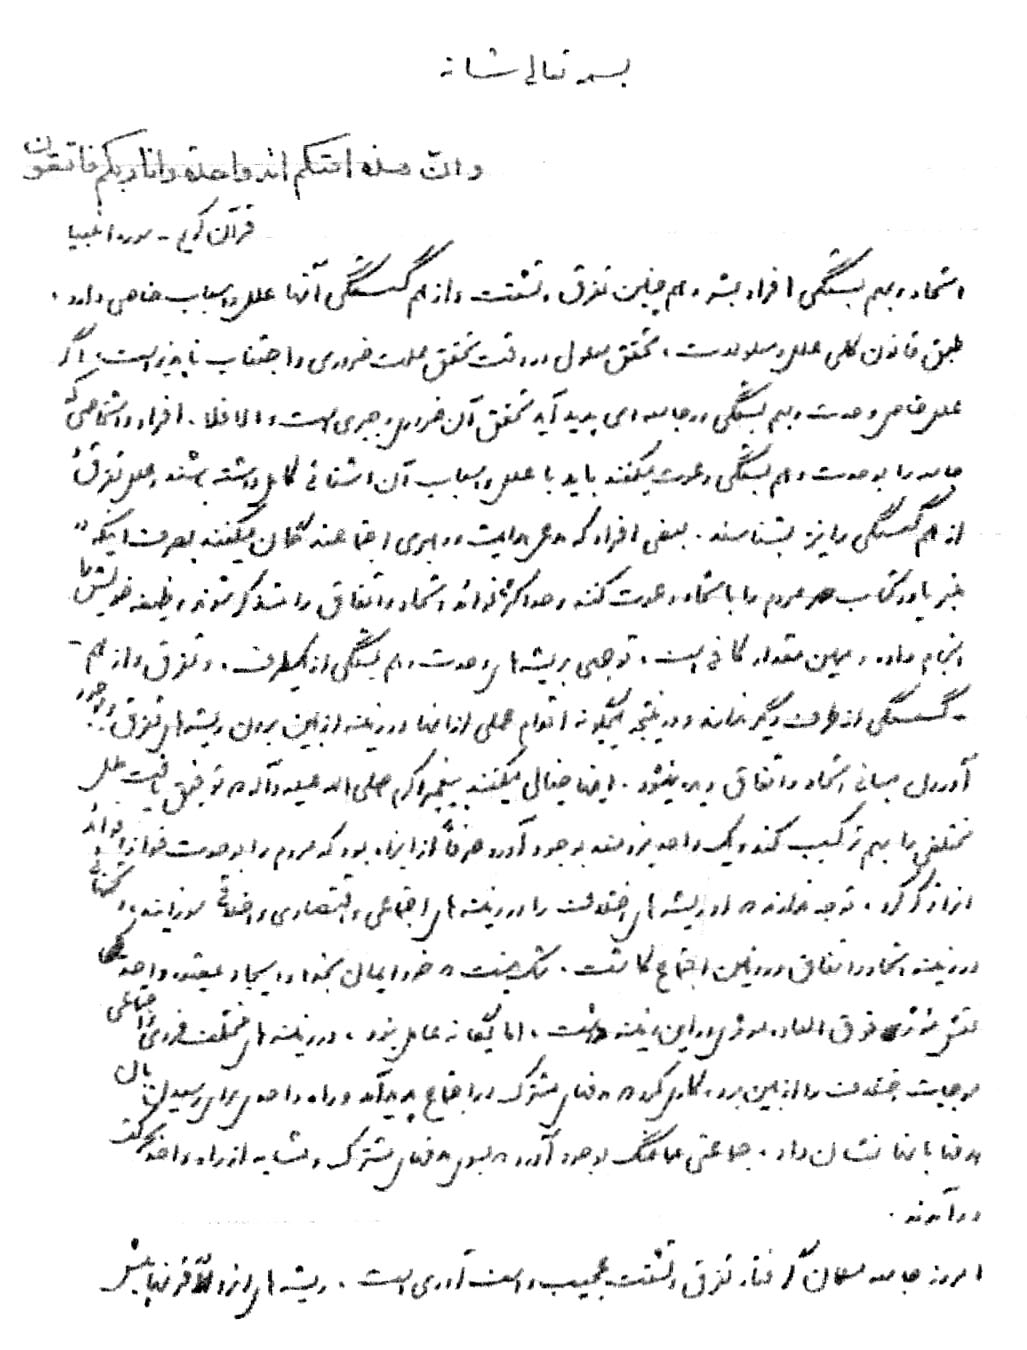 بسمه تعالی شانه
و انّ هذه امتکم امة واحدة و انا ربکم فاتقون
قرآن کریم - سوره انبیا
اتحاد و بهم بستگی افراد بشر و هم چنین تفرق و تشتت و از هم گسستگی آنها علل و اسباب خاصی دارد .
طبق قانون کلی علل و معلولات ، تحقق معلول در وقت تحقق علت ضروری و اجتناب ناپذیر است ، اگر
علل خاص وحدت و بهم بستگی در جامعه ای پدید آید تحقق آن ضروری و جبری است و الا فلا . افراد و اشخاصی که
جامعه را بوحدت و هم بستگی دعوت میکنند باید با علل و اسباب آن آشنائی کامل داشته باشند و علل تفرق و
از هم گسستگی را نیز بشناسند . بعضی افراد که مدعی هدایت و رهبری اجتماعند گمان میکنند بصرف اینکه "
خیر یا در کتاب مردم را باتحاد دعوت کنند و حداکثر فوائد اتحاد و اتفاق را متذکر شوند وظیفه خویش را
انجام داده و همین مقدار کافی است ، توجهی بریشه های وحدت و هم بستگی از یکطرف ، و تفرق و از هم -
- گسستگی از طرف دیگر ندارند و در نتیجه هیچگونه اقدام عملی از آنها در زمینه از بین بردن ریشه های تفرق و بوجود
آوردن مبانی اتحاد و اتفاق دیده نمیشود . اینها خیال میکنند پیغمبر اکرم صلی الله علیه و آله که توفیق یافت ملل
مختلفی را بهم ترکیب کند و یک واحد نیرومند بوجود آورد صرفاً از این راه بود که مردم را بوحدت خواند و فوائد
آنرا ذکر کرد . توجه ندارند که او ریشه های اختلاف را در زمینه های اجتماعی و اقتصادی و اخلاقی سوزانید و
در زمینه اتحاد و اتفاق در زمین اجتماع کاشت . شک نیست که خود ایمان بخدا و ایجاد عقیده واحد
نقش فوق العاده موثری در این زمینه داشت ، اما یگانه عامل نبود ، در زمینه های مختلف فردی و اجتماعی
موجبات اختلاف را از بین برد ، کاری کرد که هدفهای مشترک در اجتماع پدید آمد و راه واحدی برای رسیدن بآن
هدفها بآنها نشان داد ، جماعتی هماهنگ بوجود آورد که بسوی هدفهای مشترک و مشابه از راه واحد بحرکت
درآمدند .
امروز جامعه مسلمان گرفتار تفرق و تشتت عجیب و اسف آوری است . ریشه های